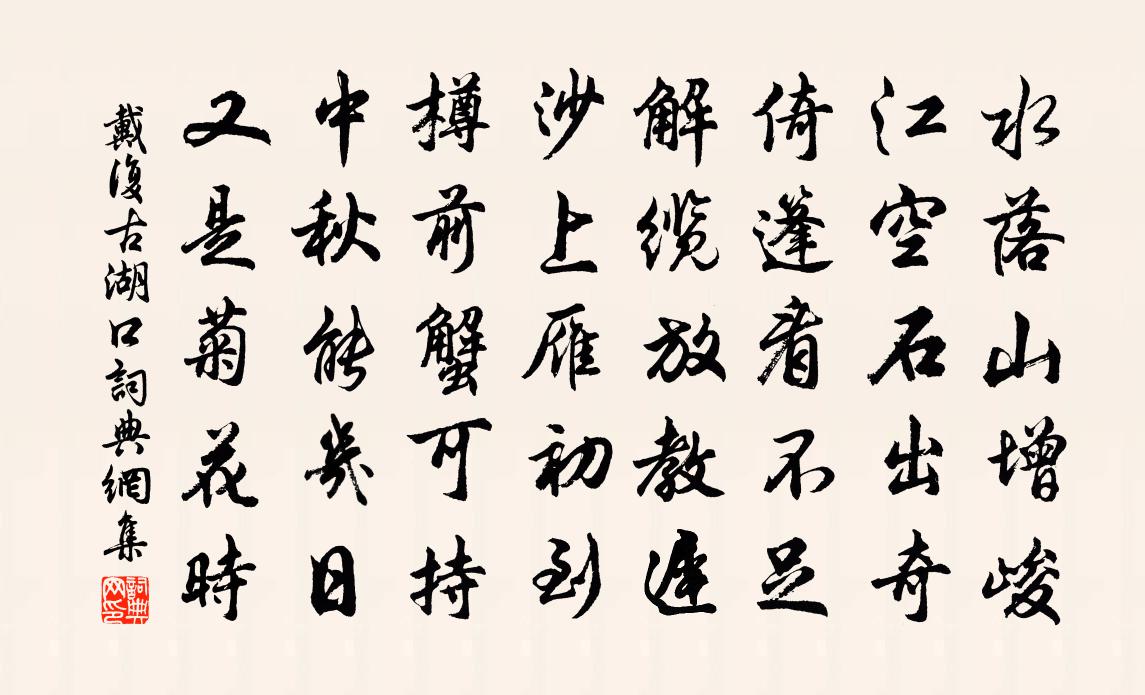 水落山增峻
江空石出奇
倚篷看不足
解缆放教遲
沙上雁初到
樽前蟹可持
中秋能幾日
又是菊花時
戴復古湖口詞典網集
詞典网印